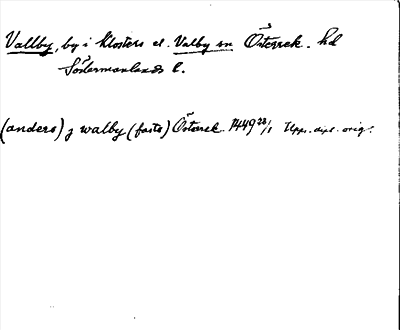 Vallby, by i Klosters el. Valby sn Österrek. hd
Södermanlands l.
(anders) j walby (faste) Österrek. 1449 28/1 Upps. dipl. orig.